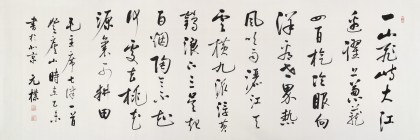 一山飛峙大江
邊躍上葱蘢
四百旋冷眼向
洋看世界熱
風吹雨灑江天
雲橫九派浮黄
鶴浪下三吴起
白烟陶令不知
何處去桃花
源裏可耕田
毛主席七律一首
登廬山時在乙
書於北京